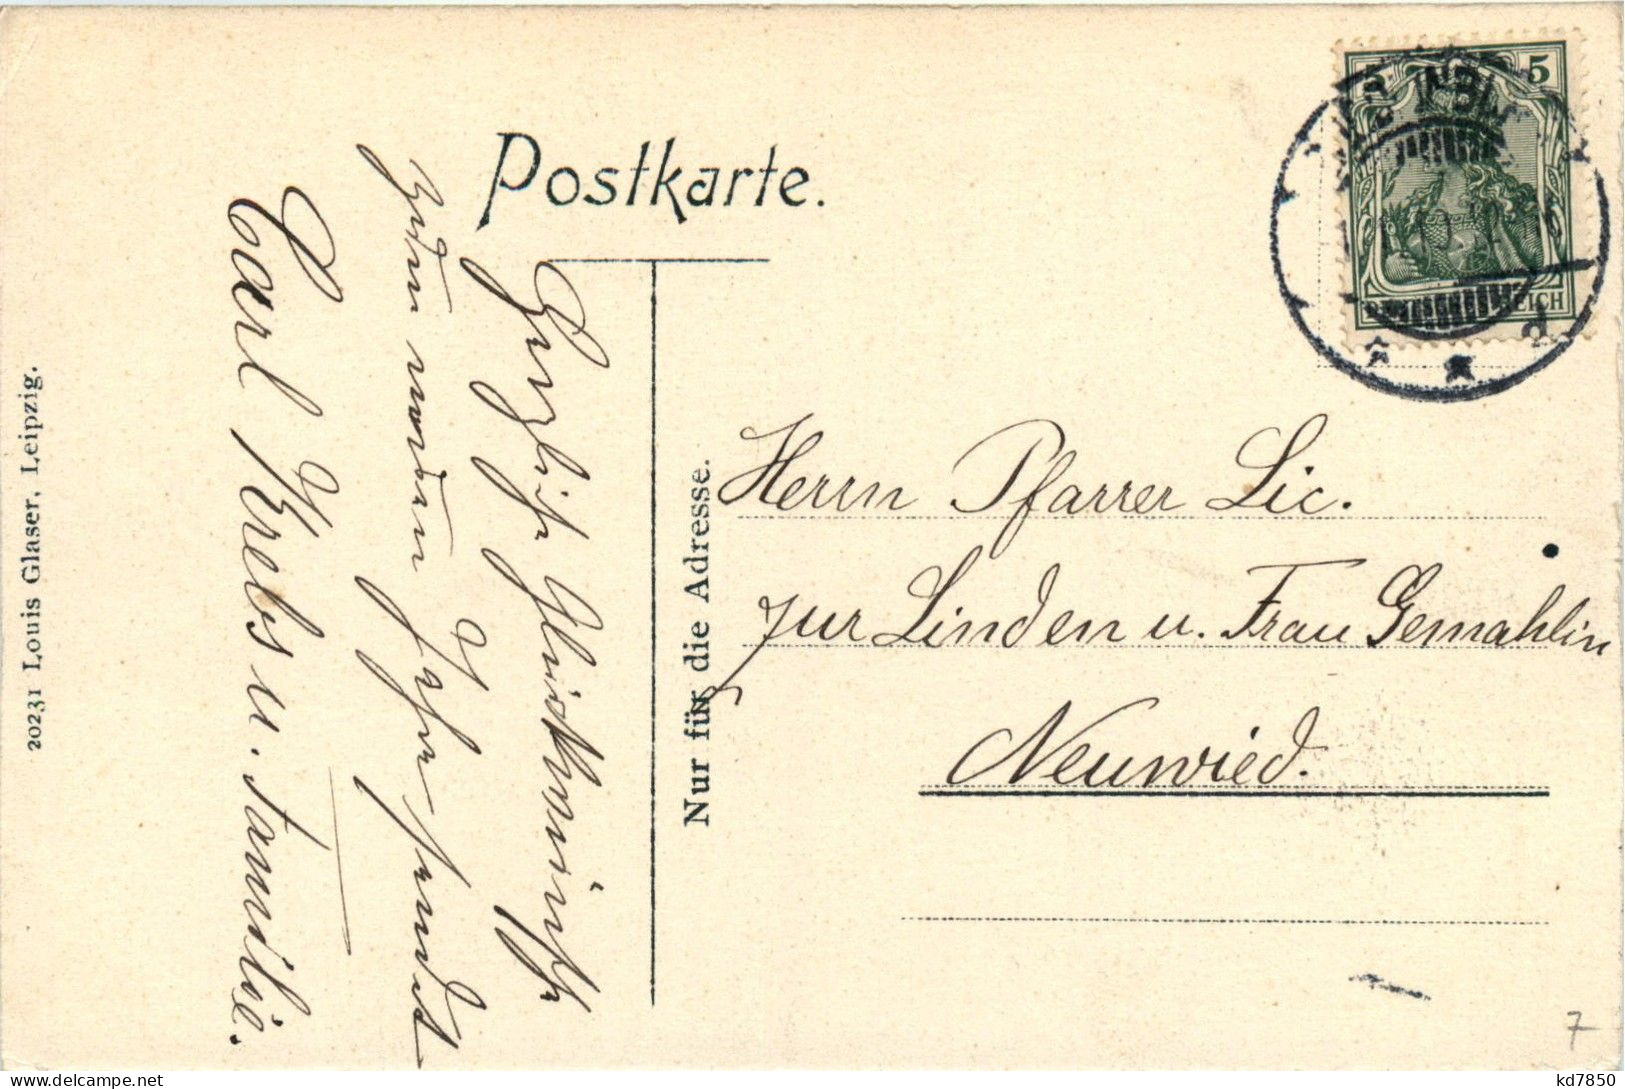 Postkarte.
5 5
EICH
Herzliche Glückwünsche
zum neuen Jahre sendet
Carl Krebs u. Familie.
Nur für die Adresse.
Herrn Pfarrer Lic.
zur Linden u. Frau Gemahlin
Neuwied.
20231 Louis Glaser, Leipzig.
7
kd7850